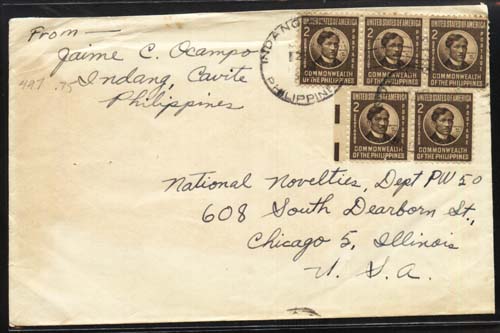 From —
Jaime C. Ocampo
Indang, Cavite
Philippines
INDANG
PHILIPPIN
UNITED STATES OF AMERICA
2
POSTAGE
COMMONWEALTH
OF THE PHILIPPINES
UNITED STATES OF AMERICA
2
POSTAGE
COMMONWEALTH
OF THE PHILIPPINES
UNITED STATES OF AMERICA
2
POSTAGE
COMMONWEALTH
OF THE PHILIPPINES
UNITED STATES OF AMERICA
2
POSTAGE
COMMONWEALTH
OF THE PHILIPPINES
UNITED STATES OF AMERICA
2
POSTAGE
COMMONWEALTH
OF THE PHILIPPINES
National Novelties, Dept PW 50
608 South Dearborn St.,
Chicago 5, Illinois
U. S. A.